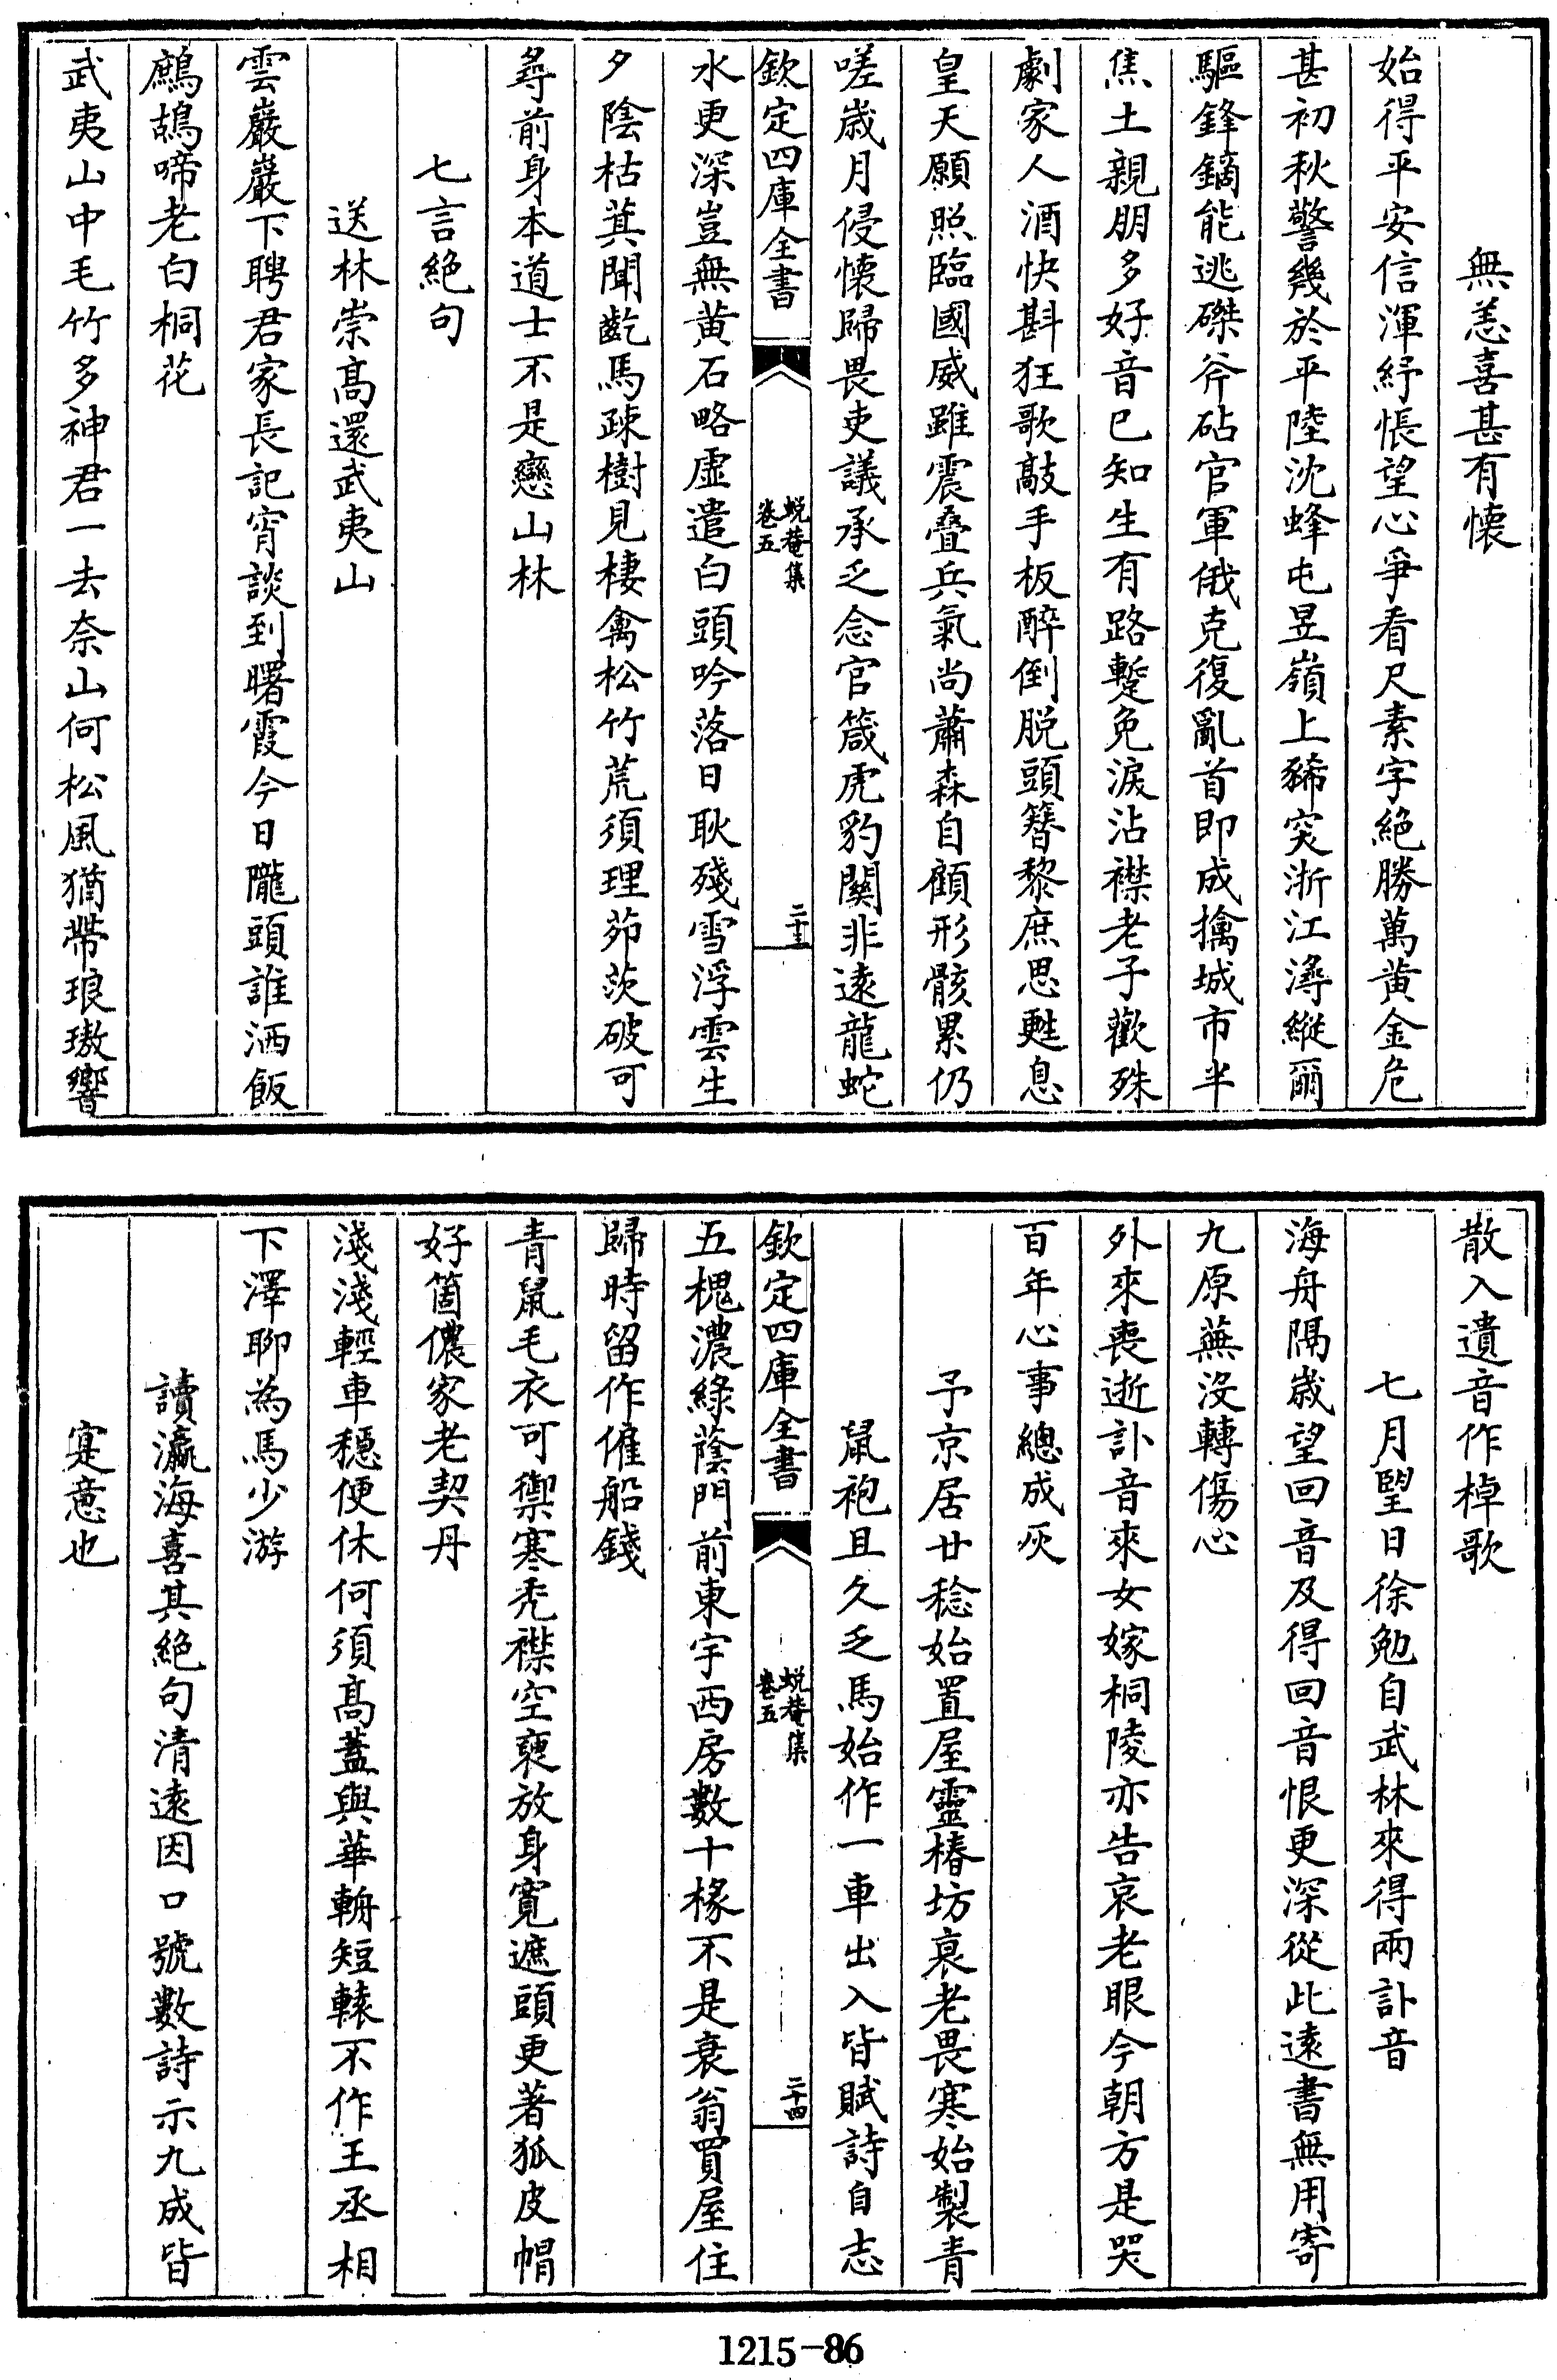 無恙喜甚有懷
始得平安信渾紓悵望心爭看尺素字絶勝萬黄金危
甚初秋警幾於平陸沈蜂屯昱嶺上豨突浙江潯縱爾
驅鋒鏑能逃磔斧砧官軍俄克復亂首即成擒城市半
焦土親朋多好音已知生有路蹔免淚沾襟老子歡殊
劇家人酒快斟狂歌敲手板醉倒脱頭簪黎庶思甦息
皇天願照臨國威雖震疊兵氣尚蕭森自顧形骸累仍
嗟歳月侵懷歸畏吏議承乏念官箴虎豹關非遠龍蛇
欽定四庫全書
蛻菴集
卷五
二十三
水更深豈無黄石略虚遣白頭吟落日耿殘雪浮雲生
夕陰枯萁聞齕馬疎樹見棲禽松竹荒須理茆茨破可
尋前身本道士不是戀山林
七言絶句
送林崇髙還武夷山
雲巖巖下聘君家長記宵談到曙霞今日隴頭誰洒飯
鷓鴣啼老白桐花
武夷山中毛竹多神君一去奈山何松風猶帶琅璈響
散入遺音作棹歌
七月朢日徐勉自武林來得兩訃音
海舟隔歳望回音及得回音恨更深從此逺書無用寄
九原蕪沒轉傷心
外來喪逝訃音來女嫁桐陵亦告哀老眼今朝方是哭
百年心事總成灰
予京居廿稔始置屋靈椿坊衰老畏寒始製青
鼠袍且久乏馬始作一車出入皆賦詩自志
欽定四庫全書
蛻菴集
卷五
二十四
五槐濃緑蔭門前東宇西房數十椽不是衰翁買屋住
歸時留作僱船錢
青鼠毛衣可禦寒秃襟空褎放身寬遮頭更著狐皮帽
好箇儂家老契丹
淺淺輕車穏便休何須髙葢與華輈短轅不作王丞相
下澤聊為馬少游
讀瀛海喜其絶句清逺因口號數詩示九成皆
寔意也
1215-86